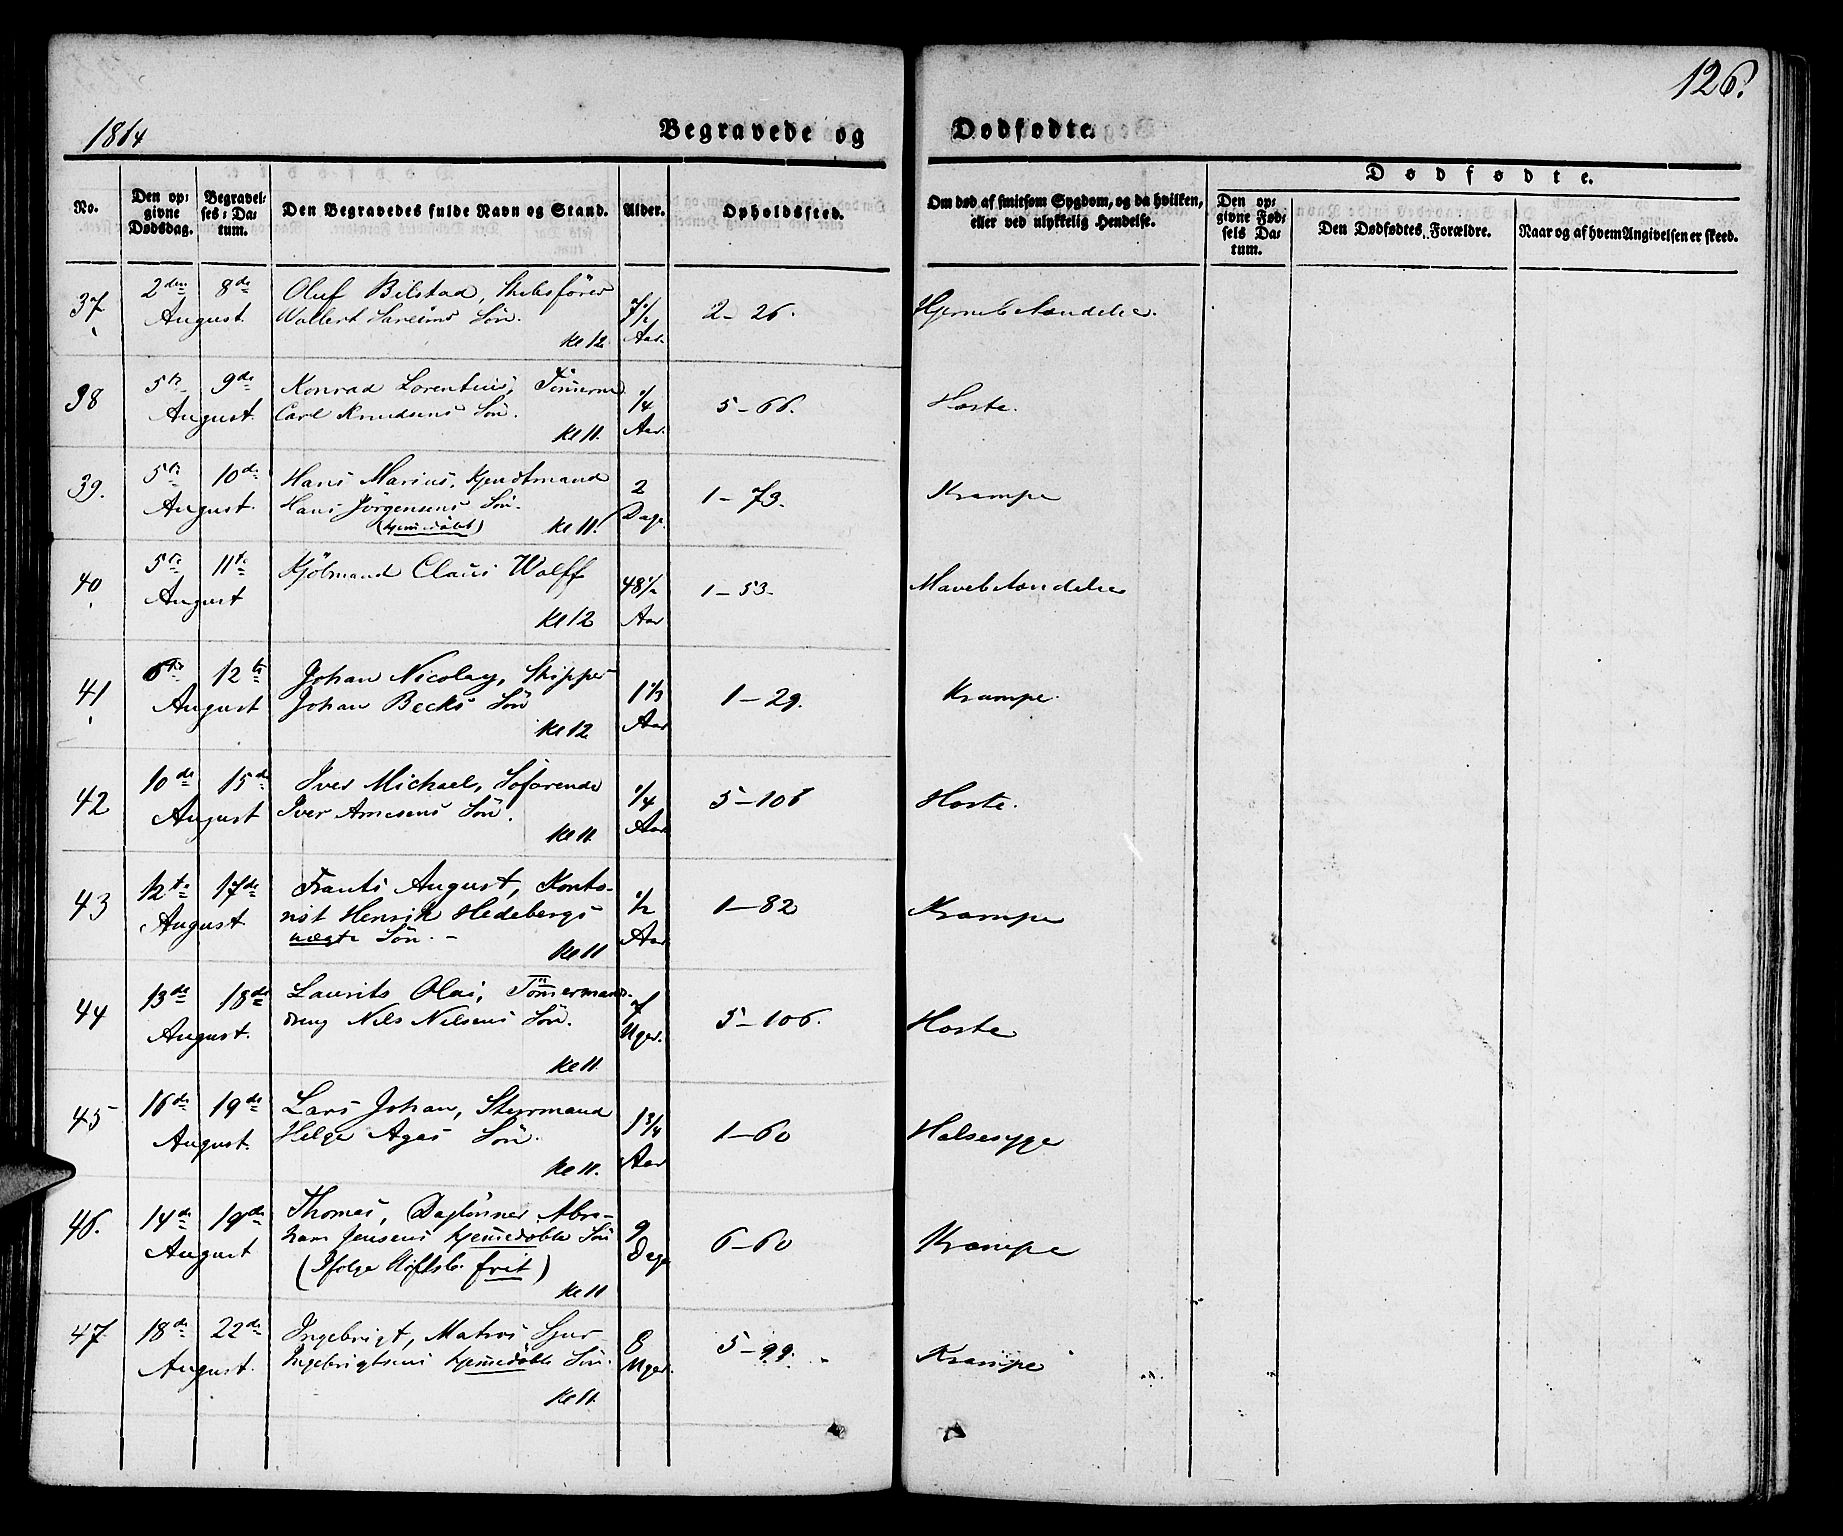 126.
1864 Begravede og Dødfødte.
No.
Den opgivne Dødsdag.
Begravelses-Datum.
Den Begravedes fulde Navn og Stand.
Alder.
Opholdssted.
Om død af smitsom Sygdom, og da hvilken, eller ved ulykkelig Hendelse.
Dødfødte.
Den opgivne Fødsels Datum.
Den Dødfødtes Forældre.
Naar og af hvem Angivelsen er skeed.
37. 2den 8de Oluf Bilstad, Skibsfører 7½ 2-26. Hjernebetændelse.
August. Wollert Søn. Aar.
Kl 12.
38 5te 9de Konrad Lorentius, Tømerm. ¼ 5-66. Hoste.
August. Carl Knudsens Søn. Aar.
Kl 11.
39. 5te 10de Hans Marius, Kjendtmand 2 1-73. Krampe
August. Hans Jørgensens Søn. Dage.
(hjemedøbt) Kl 11.
40. 5te 11te Kjølmand Claus Wolff 48½ 1-53. Mavebetændelse
August Aar
Kl 12
41. 6te 12te Johan Nicolay, Skipper 1⅓ 1-29. Krampe.
August Johan Becks Søn Aar
Kl 12
42 10de 15de Iver Michael, Søfarende ¼ 5-106 Hoste.
August Iver Arnesens Søn. Aar
Kl 11.
43 12te 17de Frants August, Konto- ½ 1-82 Krampe
August rist Henrik Hedebergs Aar
uægte Søn. - Kl 11
44 13de 18de Laurits Olai, Tømermands- 7 5-106. Hoste
August. dreng Nils Nilsens Søn. Uger.
Kl 11.
45 16de 19de Lars Johan, Styrmand 1¾ 1-60 Halsesyge
August. Helge Ages Søn. Aar
Kl 11.
46. 14de 19de Thomas, Daglønner Abra- 9 6-60 Krampe
August ham Jensens hjemedøbte Søn Dage
(Ifølge frit)
Kl 11
47. 18de 22de Ingebrigt, Matros Sjur 8 5-99. Krampe
August. Ingebrigtsens hjemedøbte Søn. Uger.
Kl 11.